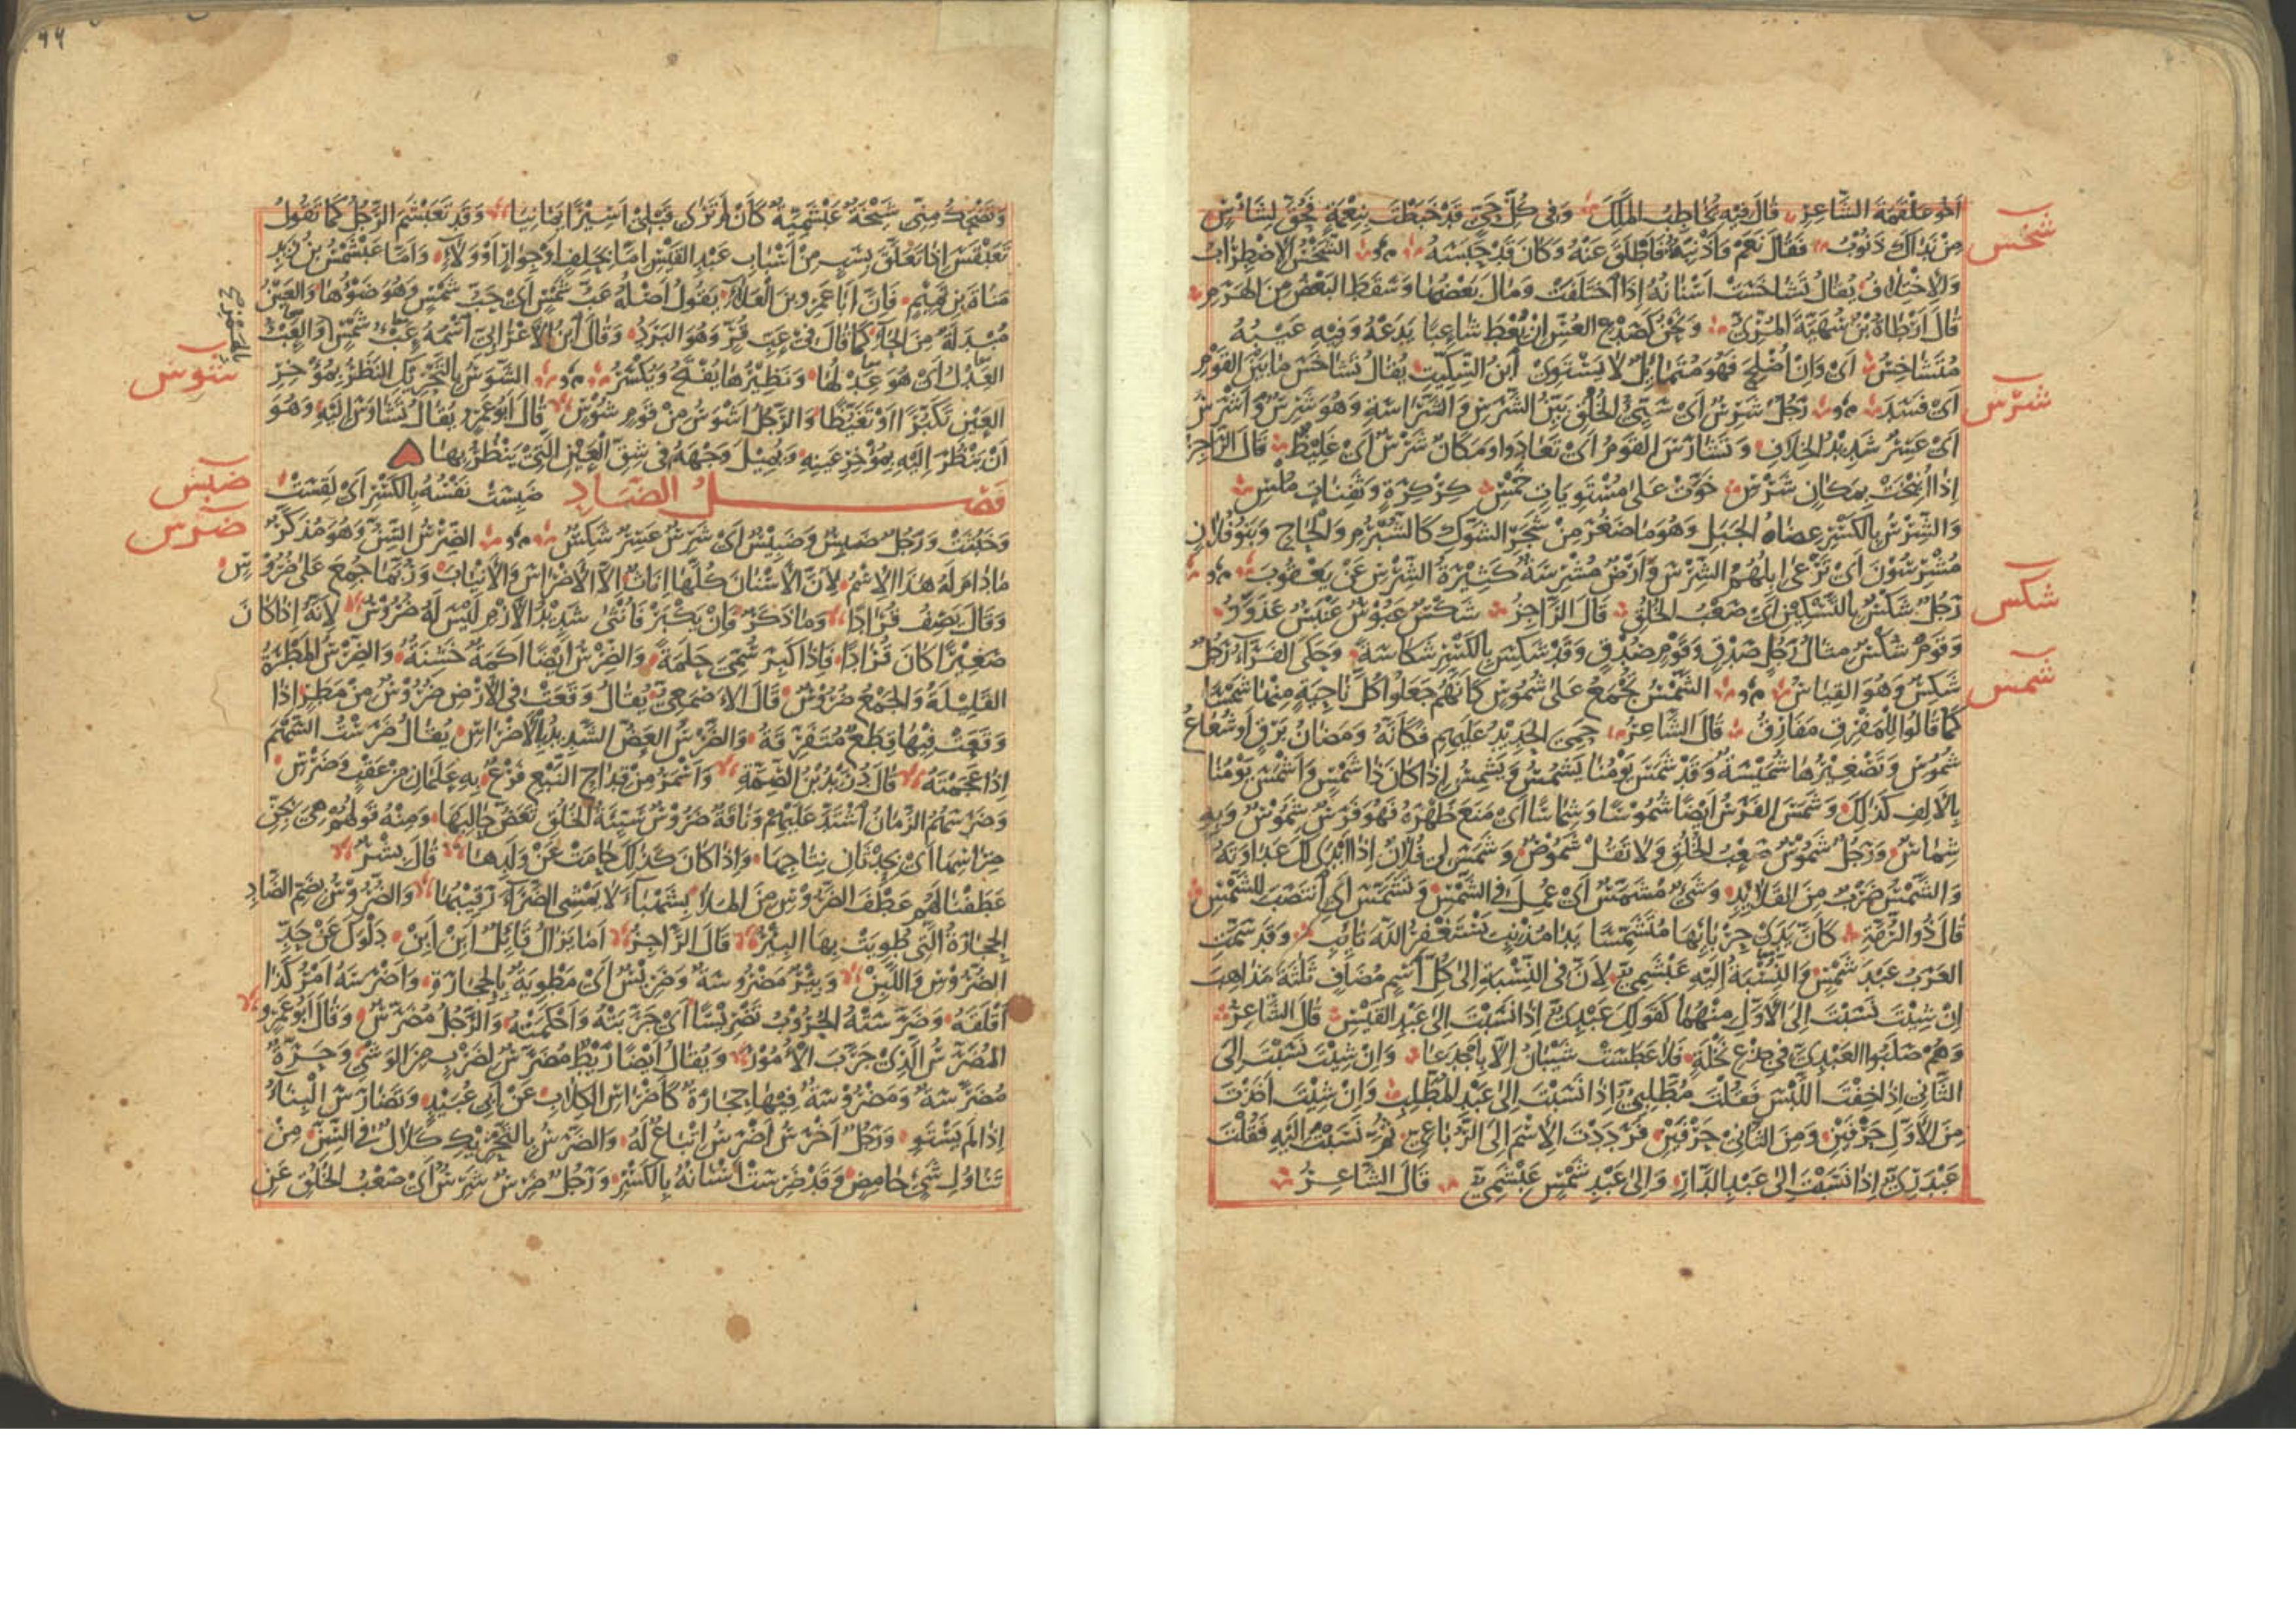 اَخُو عَلْقَمَةَ الشَّاعِرِ قَالَ فِيْهِ يُخَاطِبُ المَلِكَ وَفِى كُلِّ حَىٍّ قَدْ خَبَطْتَ بِنِعْمَةٍ فَحُقَّ لِشَاْسٍ
شخس
مِنْ نَدَاكَ ذَنُوْبُ فَقَالَ نَعَمْ وَاَذْنِبَةٌ فَاَطْلَقَ عَنْهُ وَكَانَ قَدْ حَبَسَهُ الشَّخْسُ الاِضْطِرَابُ
وَالاِخْتِلَافُ يُقَالُ تَشَاخَسَتْ اَسْنَانُهُ اِذَا اخْتَلَفَتْ وَمَالَ بَعْضُهَا وَسَقَطَ البَعْضُ مِنَ الهَرَمِ
قَالَ اَرْطَاةُ بْنُ سُهَيَّةَ المُرِّىُّ وَنَحْنُ كَصَدْعِ العُسِّ اِنْ يُعْطَ شَاعِبًا يَدَعْهُ وَفِيْهِ عَيْبُهُ
مُتَشَاخِسُ اَىْ وَاِنْ اُصْلِحَ فَهُوَ مُتَمَائِلٌ لَا يَسْتَوِىْ اِبْنُ السِّكِّيْتِ يُقَالُ تَشَاخَسَ مَا بَيْنَ القَوْمِ
شرس
اَىْ فَسَدَ رَجُلٌ شَرِسٌ اَىْ سَيِّئُ الخُلُقِ بَيِّنُ الشَّرَسِ وَالشَّرَاسَةِ وَهُوَ شَرِسٌ وَاَشْرَسُ
اَىْ عَسِرٌ شَدِيْدُ الخِلَافِ وَتَشَارَسَ القَوْمُ اَىْ تَعَادَوْا وَمَكَانٌ شَرْسٌ اَىْ غَلِيْظٌ قَالَ الرَّاجِزُ
اِذَا اُنِيْخَتْ بِمَكَانٍ شَرْسٍ خَوَّتْ عَلَى مُسْتَوِيَاتٍ خَمْسٍ كِرْكِرَةٍ وَثَفِنَاتٍ مُلْسِ
وَالشِّرْسُ بِالكَسْرِ عِضَاهُ الجَبَلِ وَهُوَ مَا صَغُرَ مِنْ شَجَرِ الشَّوْكِ كَالشُّبْرُمِ وَالحَاجِ وَبَنُو فُلَانٍ
مُشْرِسُوْنَ اَىْ تَرْعَى اِبِلُهُمُ الشِّرْسَ وَاَرْضٌ مُشْرِسَةٌ كَثِيْرَةُ الشِّرْسِ عَنْ يَعْقُوْبَ
شكس
رَجُلٌ شَكْسٌ بِالتَّسْكِيْنِ اَىْ صَعْبُ الخُلُقِ قَالَ الرَّاجِزُ شَكْسٌ عَبُوْسٌ عَنْبَسٌ عَذَوَّرُ
وَقَوْمٌ شُكْسٌ مِثَالُ رَجُلٍ صَدْقٍ وَقَوْمٍ صُدْقٍ وَقَدْ شَكِسَ بِالكَسْرِ شَكَاسَةً وَحَكَى الفَرَّاءُ رَجُلٌ
شمس
شَكِسٌ وَهُوَ القِيَاسُ الشَّمْسُ تُجْمَعُ عَلَى شُمُوْسٍ كَاَنَّهُمْ جَعَلُوْا كُلَّ نَاحِيَةٍ مِنْهَا شَمْسًا
كَمَا قَالُوْا لِلْمَفْرِقِ مَفَارِقُ قَالَ الشَّاعِرُ حَمِىَ الحَدِيْدُ عَلَيْهِمِ فَكَاَنَّهُ وَمَضَانُ بَرْقٍ اَوْ شُعَاعُ
شُمُوْسِ وَتَصْغِيْرُهَا شُمَيْسَةٌ وَقَدْ شَمَسَ يَوْمُنَا يَشْمُسُ وَيَشْمِسُ اِذَا كَانَ ذَا شَمْسٍ وَاَشْمَسَ يَوْمُنَا
بِالاَلِفِ كَذٰلِكَ وَشَمَسَ الفَرَسُ اَيْضًا شُمُوْسًا وَشِمَاسًا اَىْ مَنَعَ ظَهْرَهُ فَهُوَ فَرَسٌ شَمُوْسٌ وَبِهِ
شِمَاسٌ وَرَجُلٌ شَمُوْسٌ صَعْبُ الخُلُقِ وَلَا تَقُلْ شَمُوْصٌ وَشَمَسَ لِى فُلَانٌ اِذَا اَبْدَى لَكَ عَدَاوَتَهُ
وَالشَّمْسُ ضَرْبٌ مِنَ القَلَائِدِ وَشَىْءٌ مُشَمَّسٌ اَىْ عُمِلَ فِى الشَّمْسِ وَتَشَمَّسَ اَىِ انْتَصَبَ لِلشَّمْسِ
قَالَ ذُو الرُّمَّةِ كَاَنَّ يَدَىْ حِرْبَائِهَا مُتَشَمِّسًا يَدَا مُذْنِبٍ يَسْتَغْفِرُ اللهَ تَائِبِ وَقَدْ سَمَّتِ
العَرَبُ عَبْدَ شَمْسٍ وَالنِّسْبَةُ اِلَيْهِ عَبْشَمِىٌّ لِاَنَّ فِى النِّسْبَةِ اِلَى كُلِّ اسْمٍ مُضَافٍ ثَلٰثَةَ مَذَاهِبَ
اِنْ شِئْتَ نَسَبْتَ اِلَى الاَوَّلِ مِنْهُمَا كَقَوْلِكَ عَبْدِىٌّ اِذَا نَسَبْتَ اِلَى عَبْدِ القَيْسِ قَالَ الشَّاعِرُ
وَهُمْ صَلَبُوا العَبْدِىَّ فِى جِذْعِ نَخْلَةٍ فَلَا عَطَسَتْ شَيْبَانُ اِلَّا بِاَجْدَعَا وَاِنْ شِئْتَ نَسَبْتَ اِلَى
الثَّانِى اِذَا خِفْتَ اللَّبْسَ فَقُلْتَ مُطَّلِبِىٌّ اِذَا نَسَبْتَ اِلَى عَبْدِ المُطَّلِبِ وَاِنْ شِئْتَ اَخَذْتَ
مِنَ الاَوَّلِ حَرْفَيْنِ وَمِنَ الثَّانِىْ حَرْفَيْنِ فَرَدَدْتَ الاِسْمَ اِلَى الرُّبَاعِىِّ ثُمَّ نَسَبْتَ اِلَيْهِ فَقُلْتَ
عَبْدَرِىٌّ اِذَا نَسَبْتَ اِلَى عَبْدِ الدَّارِ وَاِلَى عَبْدِ شَمْسٍ عَبْشَمِىٌّ قَالَ الشَّاعِرُ
وَتَضْحَكُ مِنِّى شَيْخَةٌ عَبْشَمِيَّةٌ كَاَنْ لَمْ تَرَىْ قَبْلِىْ اَسِيْرًا يَمَانِيَا وَقَدْ تَعَبْشَمَ الرَّجُلُ كَمَا تَقُوْلُ
تَعَبْقَسَ اِذَا تَعَلَّقَ بِسَبَبٍ مِنْ اَسْبَابِ عَبْدِ القَيْسِ اِمَّا بِحِلْفٍ اَوْ جِوَارٍ اَوْ وَلَاءٍ وَاَمَّا عَبْشَمْسُ بْنُ زَيْدِ
مَنَاةَ بْنِ تَمِيْمٍ فَاِنَّ اَبَا عَمْرِو بْنَ العَلَاءِ يَقُوْلُ اَصْلُهُ عَبُّ شَمْسٍ اَىْ حَبُّ شَمْسٍ وَهُوَ ضَوْؤُهَا وَالعَيْنُ
مُبْدَلَةٌ مِنَ الحَاءِ كَمَا قَالَ فِىْ عَبِّ قُرٍّ وَهُوَ البَرَدُ وَقَالَ ابْنُ الاَعْرَابِىِّ اسْمُهُ عِبْءُ شَمْسٍ وَالعِبْءُ
شوس
العِدْلُ اَىْ هُوَ عِدْلُهَا وَنَظِيْرُهَا يُفْتَحُ وَيُكْسَرُ الشَّوَسُ بِالتَّحْرِيْكِ النَّظَرُ بِمُؤْخِرِ
العَيْنِ تَكَبُّرًا اَوْ تَغَيُّظًا وَالرَّجُلُ اَشْوَسُ مِنْ قَوْمٍ شُوْسٍ قَالَ اَبُو عَمْرٍو يُقَالُ تَشَاوَسَ اِلَيْهِ وَهُوَ
اَنْ يَنْظُرَ اِلَيْهِ بِمُؤْخِرِ عَيْنِهِ وَيُمِيْلَ وَجْهَهُ فِى شِقِّ العَيْنِ الَّتِىْ يَنْظُرُ بِهَا
ضبس
فصل الضاد ضَبِسَتْ نَفْسُهُ بِالكَسْرِ اَىْ لَقِسَتْ
ضرس
وَخَبُثَتْ وَرَجُلٌ ضَبِسٌ وَضَبِيْسٌ اَىْ شَرِسٌ عَسِرٌ شَكِسٌ الضِّرْسُ السِّنُّ وَهُوَ مُذَكَّرٌ
مَا دَامَ لَهُ هٰذَا الاِسْمُ لِاَنَّ الاَسْنَانَ كُلَّهَا اِنَاثٌ اِلَّا الاَضْرَاسَ وَالاَنْيَابَ وَرُبَّمَا جُمِعَ عَلَى ضُرُوْسٍ
وَقَالَ يَصِفُ قُرَادًا وَمَا ذَكَرٌ فَاِنْ يَكْبَرْ فَاُنْثَى شَدِيْدُ الاَزْمِ لَيْسَ لَهُ ضُرُوْسُ لِاَنَّهُ اِذَا كَانَ
صَغِيْرًا كَانَ قُرَادًا فَاِذَا كَبِرَ سُمِّىَ حَلَمَةً وَالضِّرْسُ اَيْضًا اَكَمَةٌ خَشِنَةٌ وَالضِّرْسُ المَطْرَةُ
القَلِيْلَةُ وَالجَمْعُ ضُرُوْسٌ قَالَ الاَصْمَعِىُّ يُقَالُ وَقَعَتْ فِى الاَرْضِ ضُرُوْسٌ مِنْ مَطَرٍ اِذَا
وَقَعَتْ فِيْهَا قِطَعٌ مُتَفَرِّقَةٌ وَالضَّرْسُ العَضُّ الشَّدِيْدُ بِالاَضْرَاسِ يُقَالُ ضَرَسْتُ السَّهْمَ
اِذَا عَجَمْتَهُ قَالَ دُرَيْدُ بْنُ الصِّمَّةِ وَاَسْمَرُ مِنْ قِدَاحِ النَّبْعِ فَرْعٌ بِهِ عَلَمَانِ مِنْ عَقَبٍ وَضَرْسِ
وَضَرَسَهُمُ الزَّمَانُ اشْتَدَّ عَلَيْهِمْ وَنَاقَةٌ ضَرُوْسٌ سَيِّئَةُ الخُلُقِ تَعَضُّ حَالِبَهَا وَمِنْهُ قَوْلُهُمْ هِىَ بِجِنِّ
ضِرَاسِهَا اَىْ بِحِدْثَانِ نِتَاجِهَا وَاِذَا كَانَ كَذٰلِكَ حَامَتْ عَنْ وَلَدِهَا قَالَ بِشْرٌ
عَطَفْنَا لَهُمْ عَطْفَ الضَّرُوْسِ مِنَ المَلَا بِشَهْبَاءَ لَا يَمْشِى الضَّرَاءَ رَقِيْبُهَا وَالضُّرُوْسُ بِضَمِّ الضَّادِ
الحِجَارَةُ الَّتِى طُوِيَتْ بِهَا البِئْرُ قَالَ الرَّاجِزُ اَمَا يَزَالُ قَائِلٌ اَبِنْ اَبِنْ دَلْوَكَ عَنْ حَدِّ
الضُّرُوْسِ وَاللَّبِنْ وَبِئْرٌ مَضْرُوْسَةٌ وَضَرِيْسٌ اَىْ مَطْوِيَةٌ بِالحِجَارَةِ وَاَضْرَسَهُ اَمْرُ كَذَا
اَقْلَقَهُ وَضَرَّسَتْهُ الحُرُوْبُ تَضْرِيْسًا اَىْ جَرَّبَتْهُ وَاَحْكَمَتْهُ وَالرَّجُلُ مُضَرَّسٌ وَقَالَ اَبُو عَمْرٍو
المُضَرَّسُ الَّذِىْ جَرَّبَ الاُمُوْرَ وَيُقَالُ اَيْضًا رَيْطٌ مُضَرَّسٌ لِضَرْبٍ مِنَ الوَشْىِ وَحَرَّةٌ
مُضَرَّسَةٌ وَمَضْرُوْسَةٌ فِيْهَا حِجَارَةٌ كَاَضْرَاسِ الكِلَابِ عَنْ اَبِى عُبَيْدٍ وَتَضَارَسَ البِنَاءُ
اِذَا لَمْ يَسْتَوِ وَرَجُلٌ اَخْرَسُ اَضْرَسُ اِتْبَاعٌ لَهُ وَالضَّرَسُ بِالتَّحْرِيْكِ كَلَالٌ فِى السِّنِّ مِنْ
تَنَاوُلِ شَىْءٍ حَامِضٍ وَقَدْ ضَرِسَتْ اَسْنَانُهُ بِالكَسْرِ وَرَجُلٌ ضَرِسٌ شَرِسٌ اَىْ صَعْبُ الخُلُقِ عَنِ